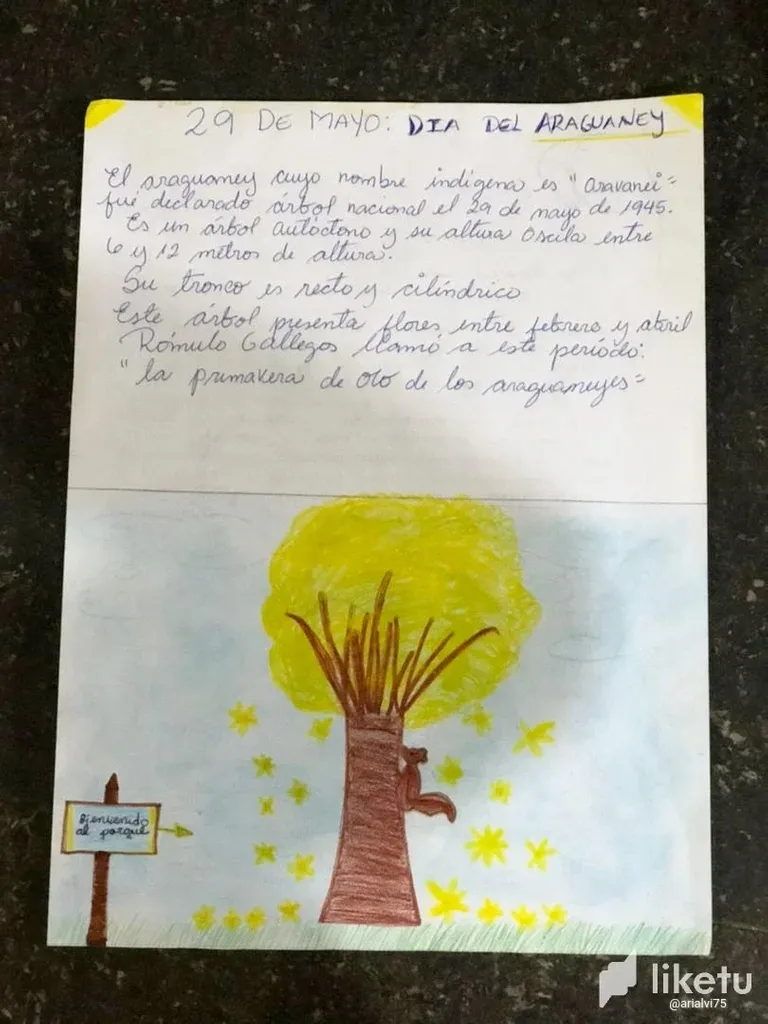 29 DE MAYO: DIA DEL ARAGUANEY
El araguaney cuyo nombre indígena es "aravanei"
fué declarado árbol nacional el 29 de mayo de 1945.
Es un árbol autóctono y su altura oscila entre
6 y 12 metros de altura.
Su tronco es recto y cilíndrico
Este árbol presenta flores entre febrero y abril
Rómulo Gallegos llamó a este período:
"la primavera de oro de los araguaneyes"
Bienvenido
al parque
liketu
@arialvi75